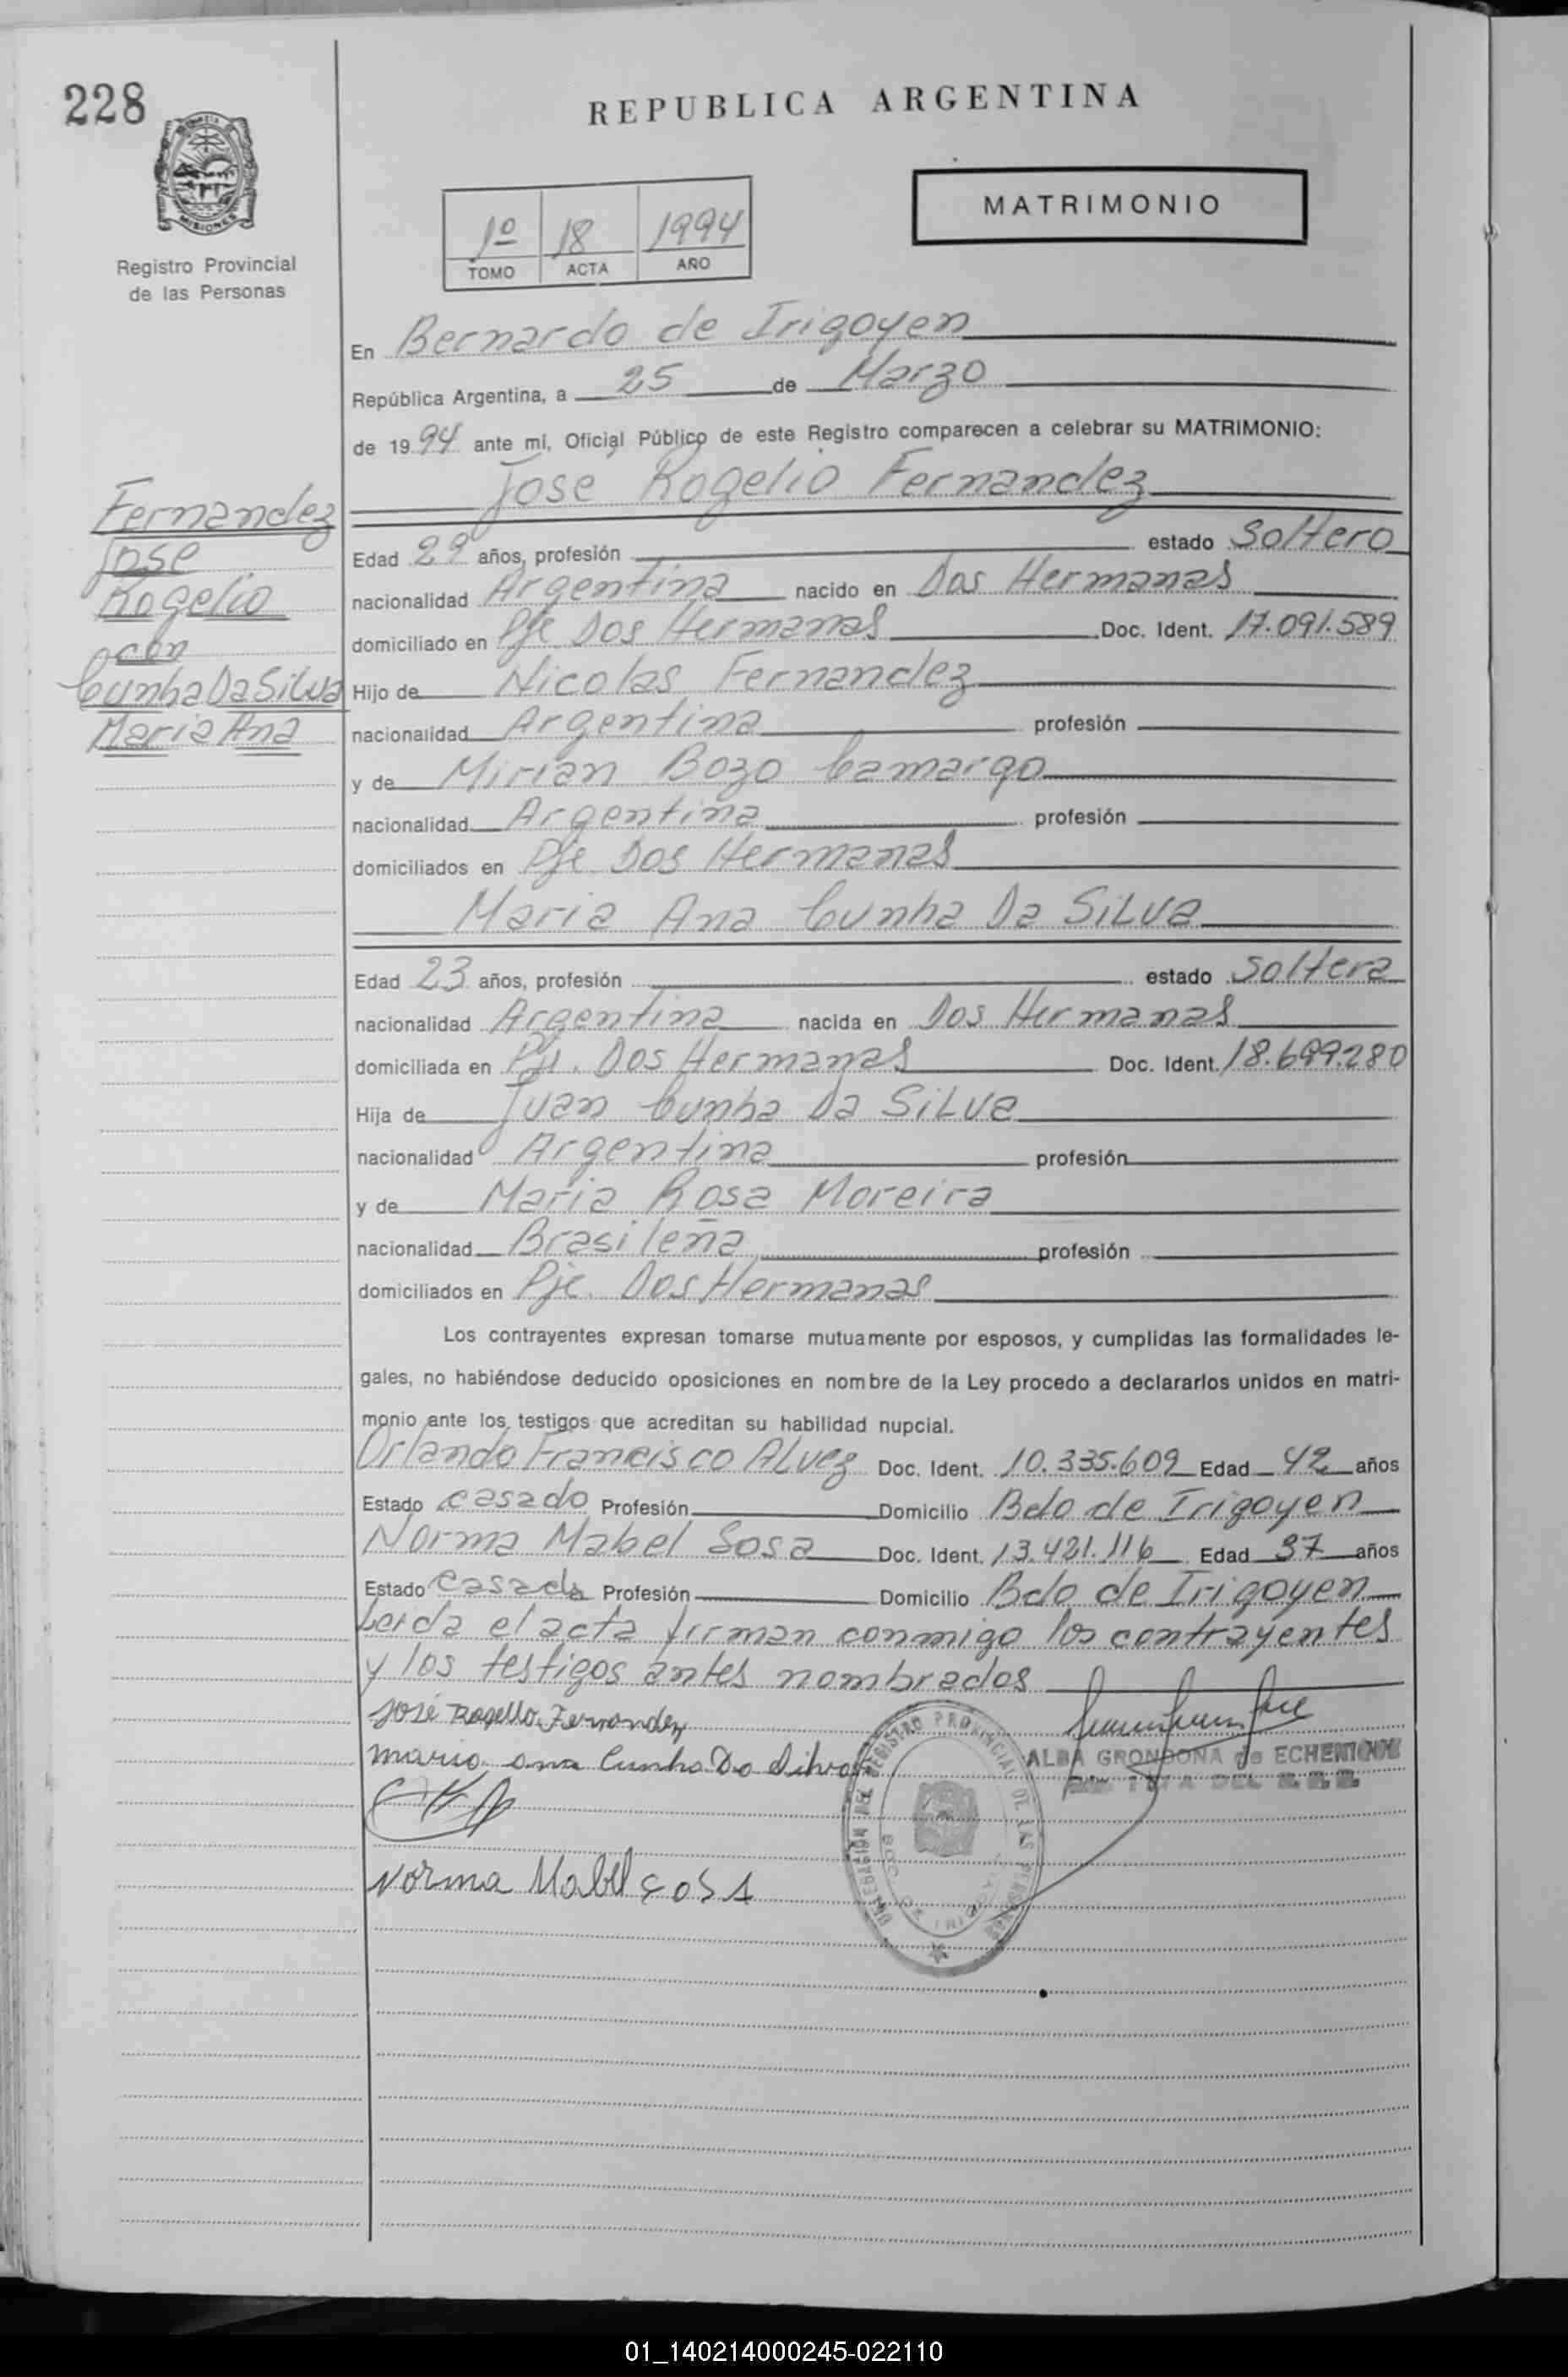 228
REPUBLICA ARGENTINA
MISIONES
MATRIMONIO
1º 18 1994
TOMO ACTA AÑO
Registro Provincial
de las Personas
En Bernardo de Irigoyen
República Argentina, a 25 de Marzo
de 1994 ante mí, Oficial Público de este Registro comparecen a celebrar su MATRIMONIO:
Jose Rogelio Fernandez
Fernandez
Jose
Rogelio
con
Cunha Da Silva
Maria Ana
Edad 29 años, profesión estado Soltero
nacionalidad Argentina nacido en Dos Hermanas
domiciliado en Pje Dos Hermanas Doc. Ident. 17.091.589
Hijo de Nicolas Fernandez
nacionalidad Argentina profesión
y de Mirian Bozo Camargo
nacionalidad Argentina profesión
domiciliados en Pje Dos Hermanas
Maria Ana Cunha Da Silva
Edad 23 años, profesión estado Soltera
nacionalidad Argentina nacida en Dos Hermanas
domiciliada en Pje. Dos Hermanas Doc. Ident. 18.699.280
Hija de Juan Cunha Da Silva
nacionalidad Argentina profesión
y de Maria Rosa Moreira
nacionalidad Brasileña profesión
domiciliados en Pje. Dos Hermanas
Los contrayentes expresan tomarse mutuamente por esposos, y cumplidas las formalidades le-
gales, no habiéndose deducido oposiciones en nombre de la Ley procedo a declararlos unidos en matri-
monio ante los testigos que acreditan su habilidad nupcial.
Orlando Francisco Alvez Doc. Ident. 10.335.609 Edad 42 años
Estado casado Profesión Domicilio Bdo de Irigoyen
Norma Mabel Sosa Doc. Ident. 13.421.116 Edad 37 años
Estado Casada Profesión Domicilio Bdo de Irigoyen
Leida el acta firman conmigo los contrayentes
y los testigos antes nombrados
José Rogello Fernandez
maria ana Cunha Da Silva
ALBA GRONDONA de ECHENIQUE
REGISTRO PROVINCIAL DE LAS PERSONAS
Norma Mabel SOSA
01_140214000245-022110